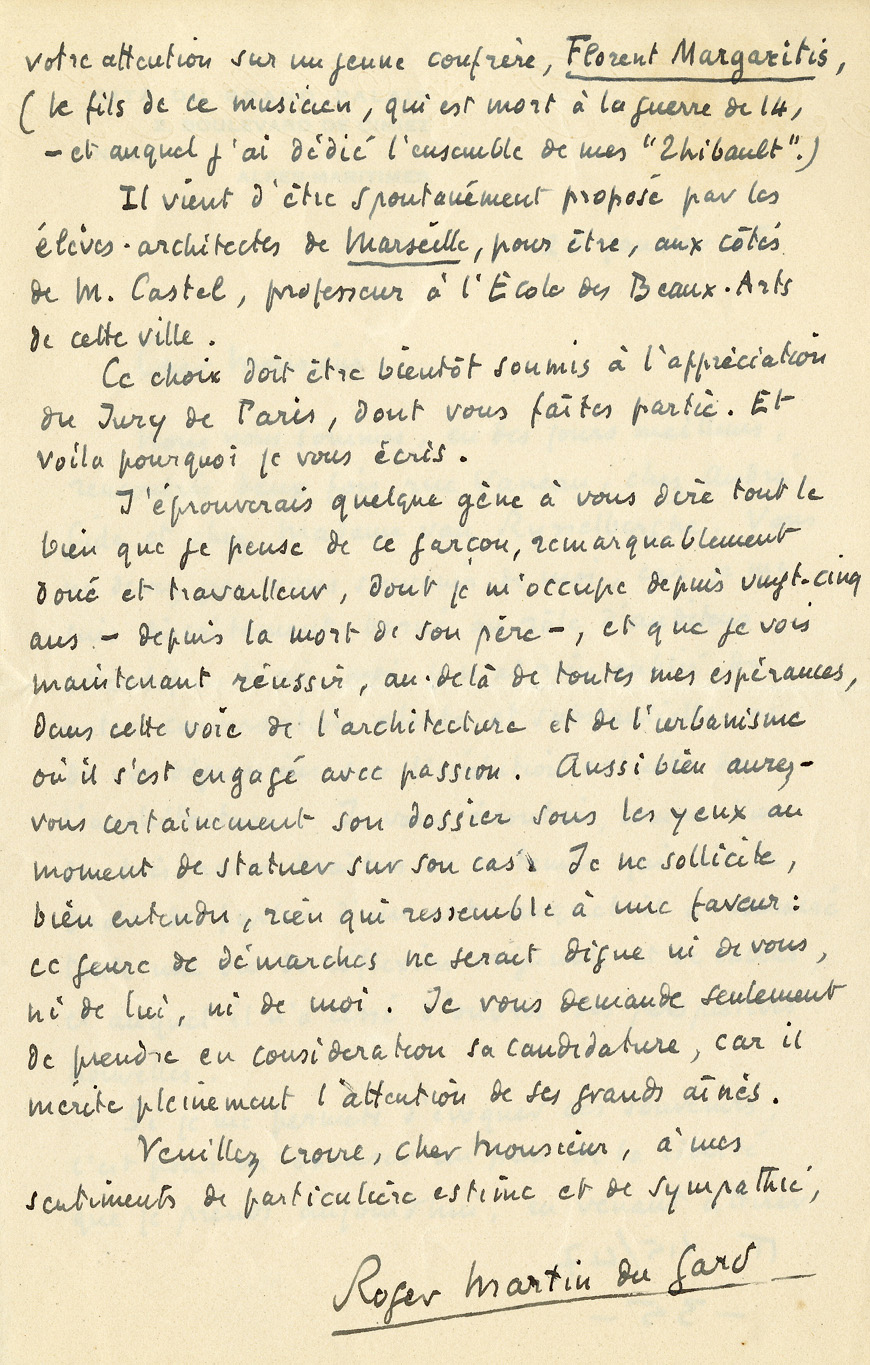 votre attention sur un jeune confrère, Florent Margaritis,
(le fils de ce musicien, qui est mort à la guerre de 14,
— et auquel j'ai dédié l'ensemble de mes "Thibault".)
Il vient d'être spontanément proposé par les
élèves-architectes de Marseille, pour être, aux côtés
de M. Castel, professeur à l'École des Beaux-Arts
de cette ville.
Ce choix doit être bientôt soumis à l'appréciation
du Jury de Paris, dont vous faites partie. Et
voilà pourquoi je vous écris.
J'éprouverais quelque gêne à vous dire tout le
bien que je pense de ce garçon, remarquablement
doué et travailleur, dont je m'occupe depuis vingt-cinq
ans — depuis la mort de son père —, et que je vois
maintenant réussir, au-delà de toutes mes espérances,
dans cette voie de l'architecture et de l'urbanisme
où il s'est engagé avec passion. Aussi bien aurez-
vous certainement son dossier sous les yeux au
moment de statuer sur son cas. Je ne sollicite,
bien entendu, rien qui ressemble à une faveur :
ce genre de démarches ne serait digne ni de vous,
ni de lui, ni de moi. Je vous demande seulement
de prendre en considération sa candidature, car il
mérite pleinement l'attention de ses grands aînés.
Veuillez croire, cher Monsieur, à mes
sentiments de particulière estime et de sympathie,
Roger Martin du Gard